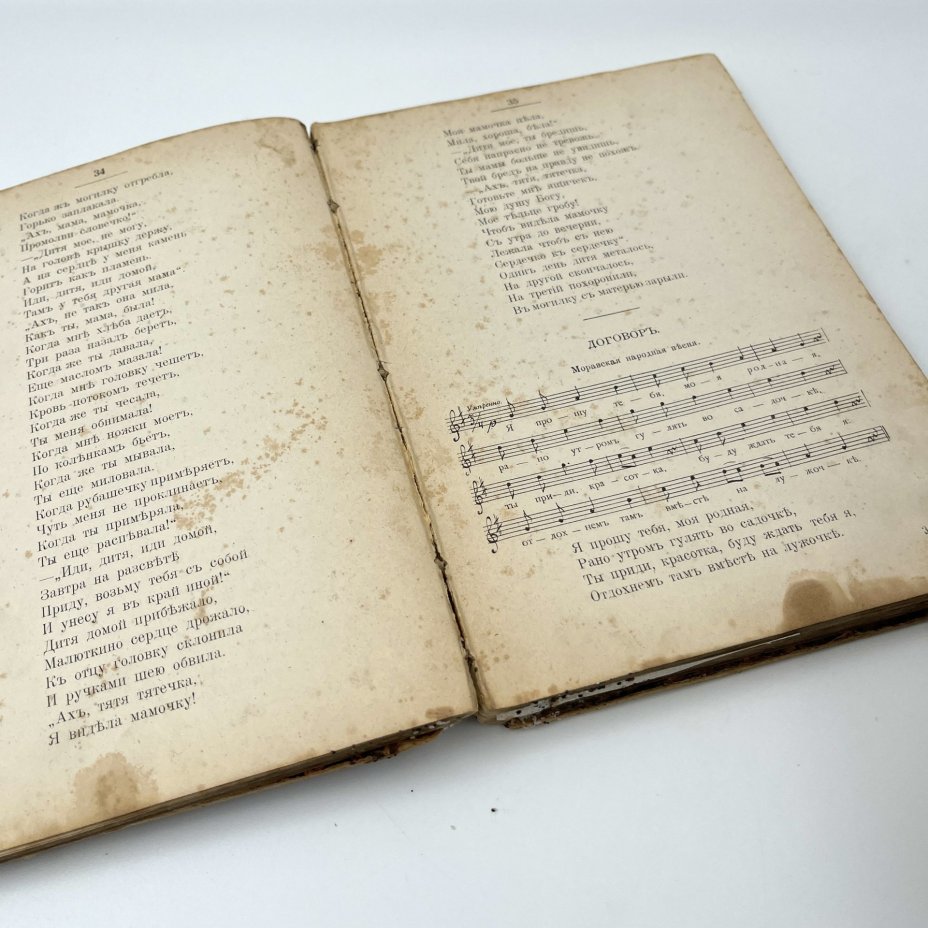 34
Когда жъ могилку отгребла,
Горько заплакала.
„Ахъ, мама, мамочка,
Промолви словечко!“
—„Дитя мое, не могу,
На головѣ крышку держу,
А на сердцѣ у меня камень
Горитъ какъ пламень.
Иди, дитя, иди домой,
Тамъ у тебя другая мама“.
„Ахъ, не такъ она мила,
Какъ ты, мама, была!
Когда мнѣ хлѣба даетъ,
Три раза назадъ беретъ,
Когда же ты давала,
Еще масломъ мазала!
Когда мнѣ головку чешетъ,
Кровь потокомъ течетъ,
Когда же ты чесала,
Ты меня обнимала!
Когда мнѣ ножки моетъ,
По колѣнкамъ бьетъ,
Когда же ты мывала,
Ты еще миловала.
Когда рубашечку примѣряетъ,
Чуть меня не проклинаетъ,
Когда ты примѣряла,
Ты еще распѣвала!“
—„Иди, дитя, иди домой,
Завтра на разсвѣтѣ
Приду, возьму тебя съ собой
И унесу я въ край иной!“
Дитя домой прибѣжало,
Малюткино сердце дрожало,
Къ отцу головку склонила
И ручками шею обвила.
„Ахъ, тятя тятечка,
Я видѣла мамочку!
35
Моя мамочка цѣла,
Мила, хороша, бѣла!“
—„Дитя мое, ты бредишь,
Себя напрасно не тревожь.
Ты мамы больше не увидишь,
Твой бредъ на правду не похожъ.
—„Ахъ, тятя, тятечка,
Готовьте мнѣ ящичекъ,
Мою душу Богу,
Мое тѣльце гробу!
Чтобъ видѣла мамочку
Съ утра до вечерни,
Лежала чтобъ съ нею
Сердечко къ сердечку“.
Одинъ день дитя металось,
На другой скончалось,
На третій похоронили,
Въ могилку съ матерью зарыли.
ДОГОВОРЪ.
Моравская народная пѣсня.
Умѣренно.
Я про—шу те—бя, мо—я род—на—я,
ра—но ут—ромъ, гу—лять во са—доч—кѣ,
ты при—ди, кра—сот—ка, бу—ду ждать те—бя я:
от—дох—немъ тамъ вмѣ—стѣ на лу—жоч—кѣ.
Я прошу тебя, моя родная,
Рано-утромъ гулять во садочкѣ,
Ты приди, красотка, буду ждать тебя я,
Отдохнемъ тамъ вмѣстѣ на лужочкѣ.